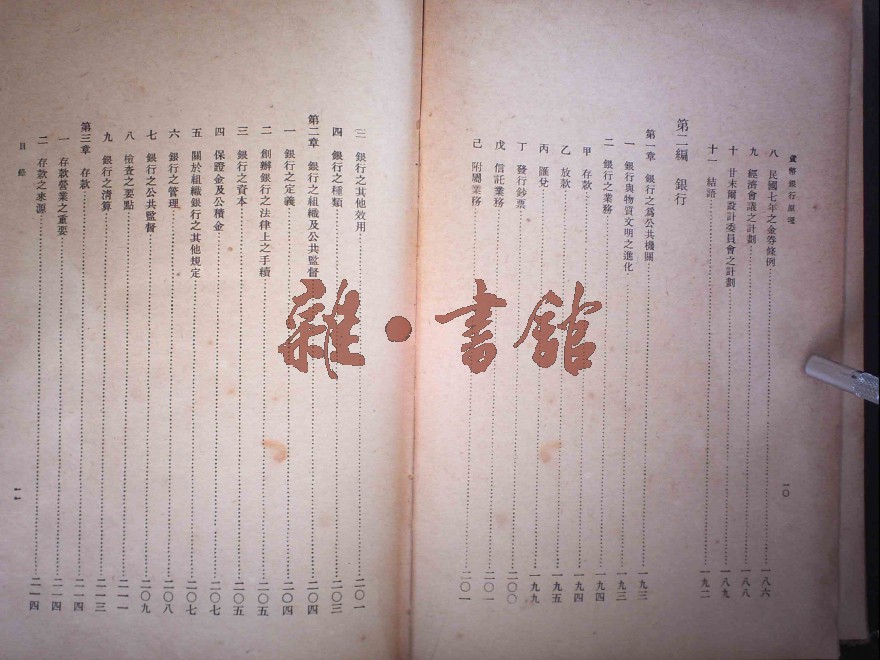 貨幣銀行原理
一〇
八 民國七年之金券條例……一八六
九 經濟會議之計劃……一八八
十 甘末爾設計委員會之計劃……一八九
十一 結語……一九二
第二編 銀行
第一章 銀行之爲公共機關……一九三
一 銀行與物質文明之進化……一九三
二 銀行之業務……一九四
甲 存款……一九四
乙 放款……一九五
丙 匯兌……一九九
丁 發行鈔票……二〇〇
戊 信託業務……二〇一
己 附屬業務……二〇一
三 銀行之其他效用……二〇一
四 銀行之種類……二〇三
第二章 銀行之組織及公共監督……二〇四
一 銀行之定義……二〇四
二 創辦銀行之法律上之手續……二〇五
三 銀行之資本……二〇五
四 保證金及公積金……二〇七
五 關於組織銀行之其他規定……二〇七
六 銀行之管理……二〇八
七 銀行之公共監督……二〇九
八 檢查之要點……二一一
九 銀行之清算……二一三
第三章 存款……二一四
一 存款營業之重要……二一四
二 存款之來源……二一四
目錄
一一
雜·書館